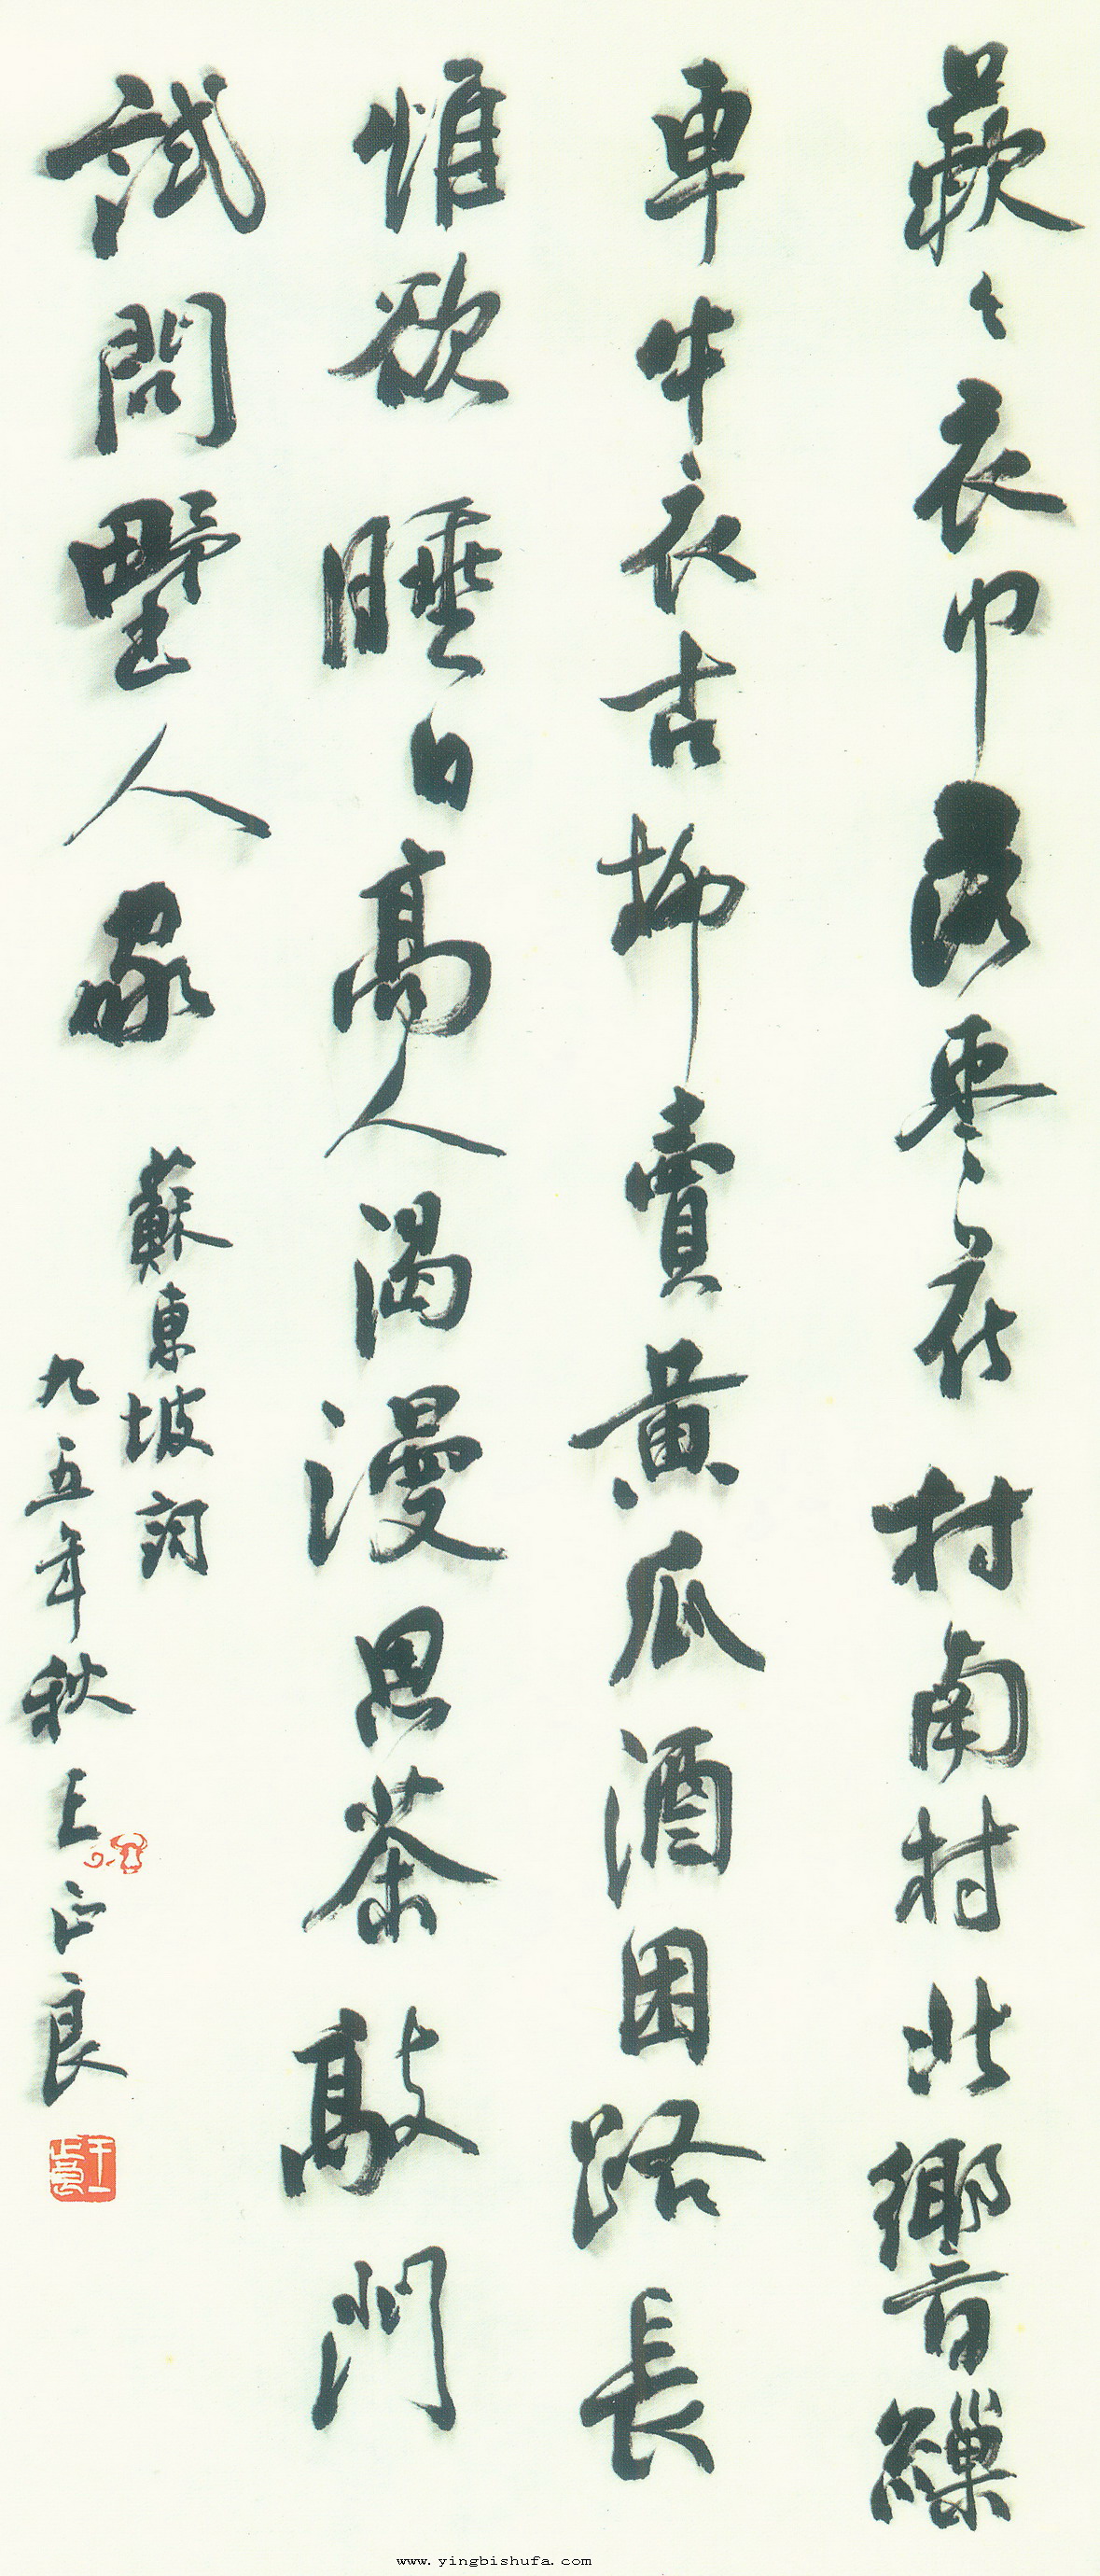 蔌々衣巾落枣花村南村北響繅
車牛衣古柳賣黄瓜酒困路長
惟欲睡日高人渴漫思茶敲門
試問野人家
蘇東坡詞
九五年秋王正良
王正良
www.yingbishufa.com